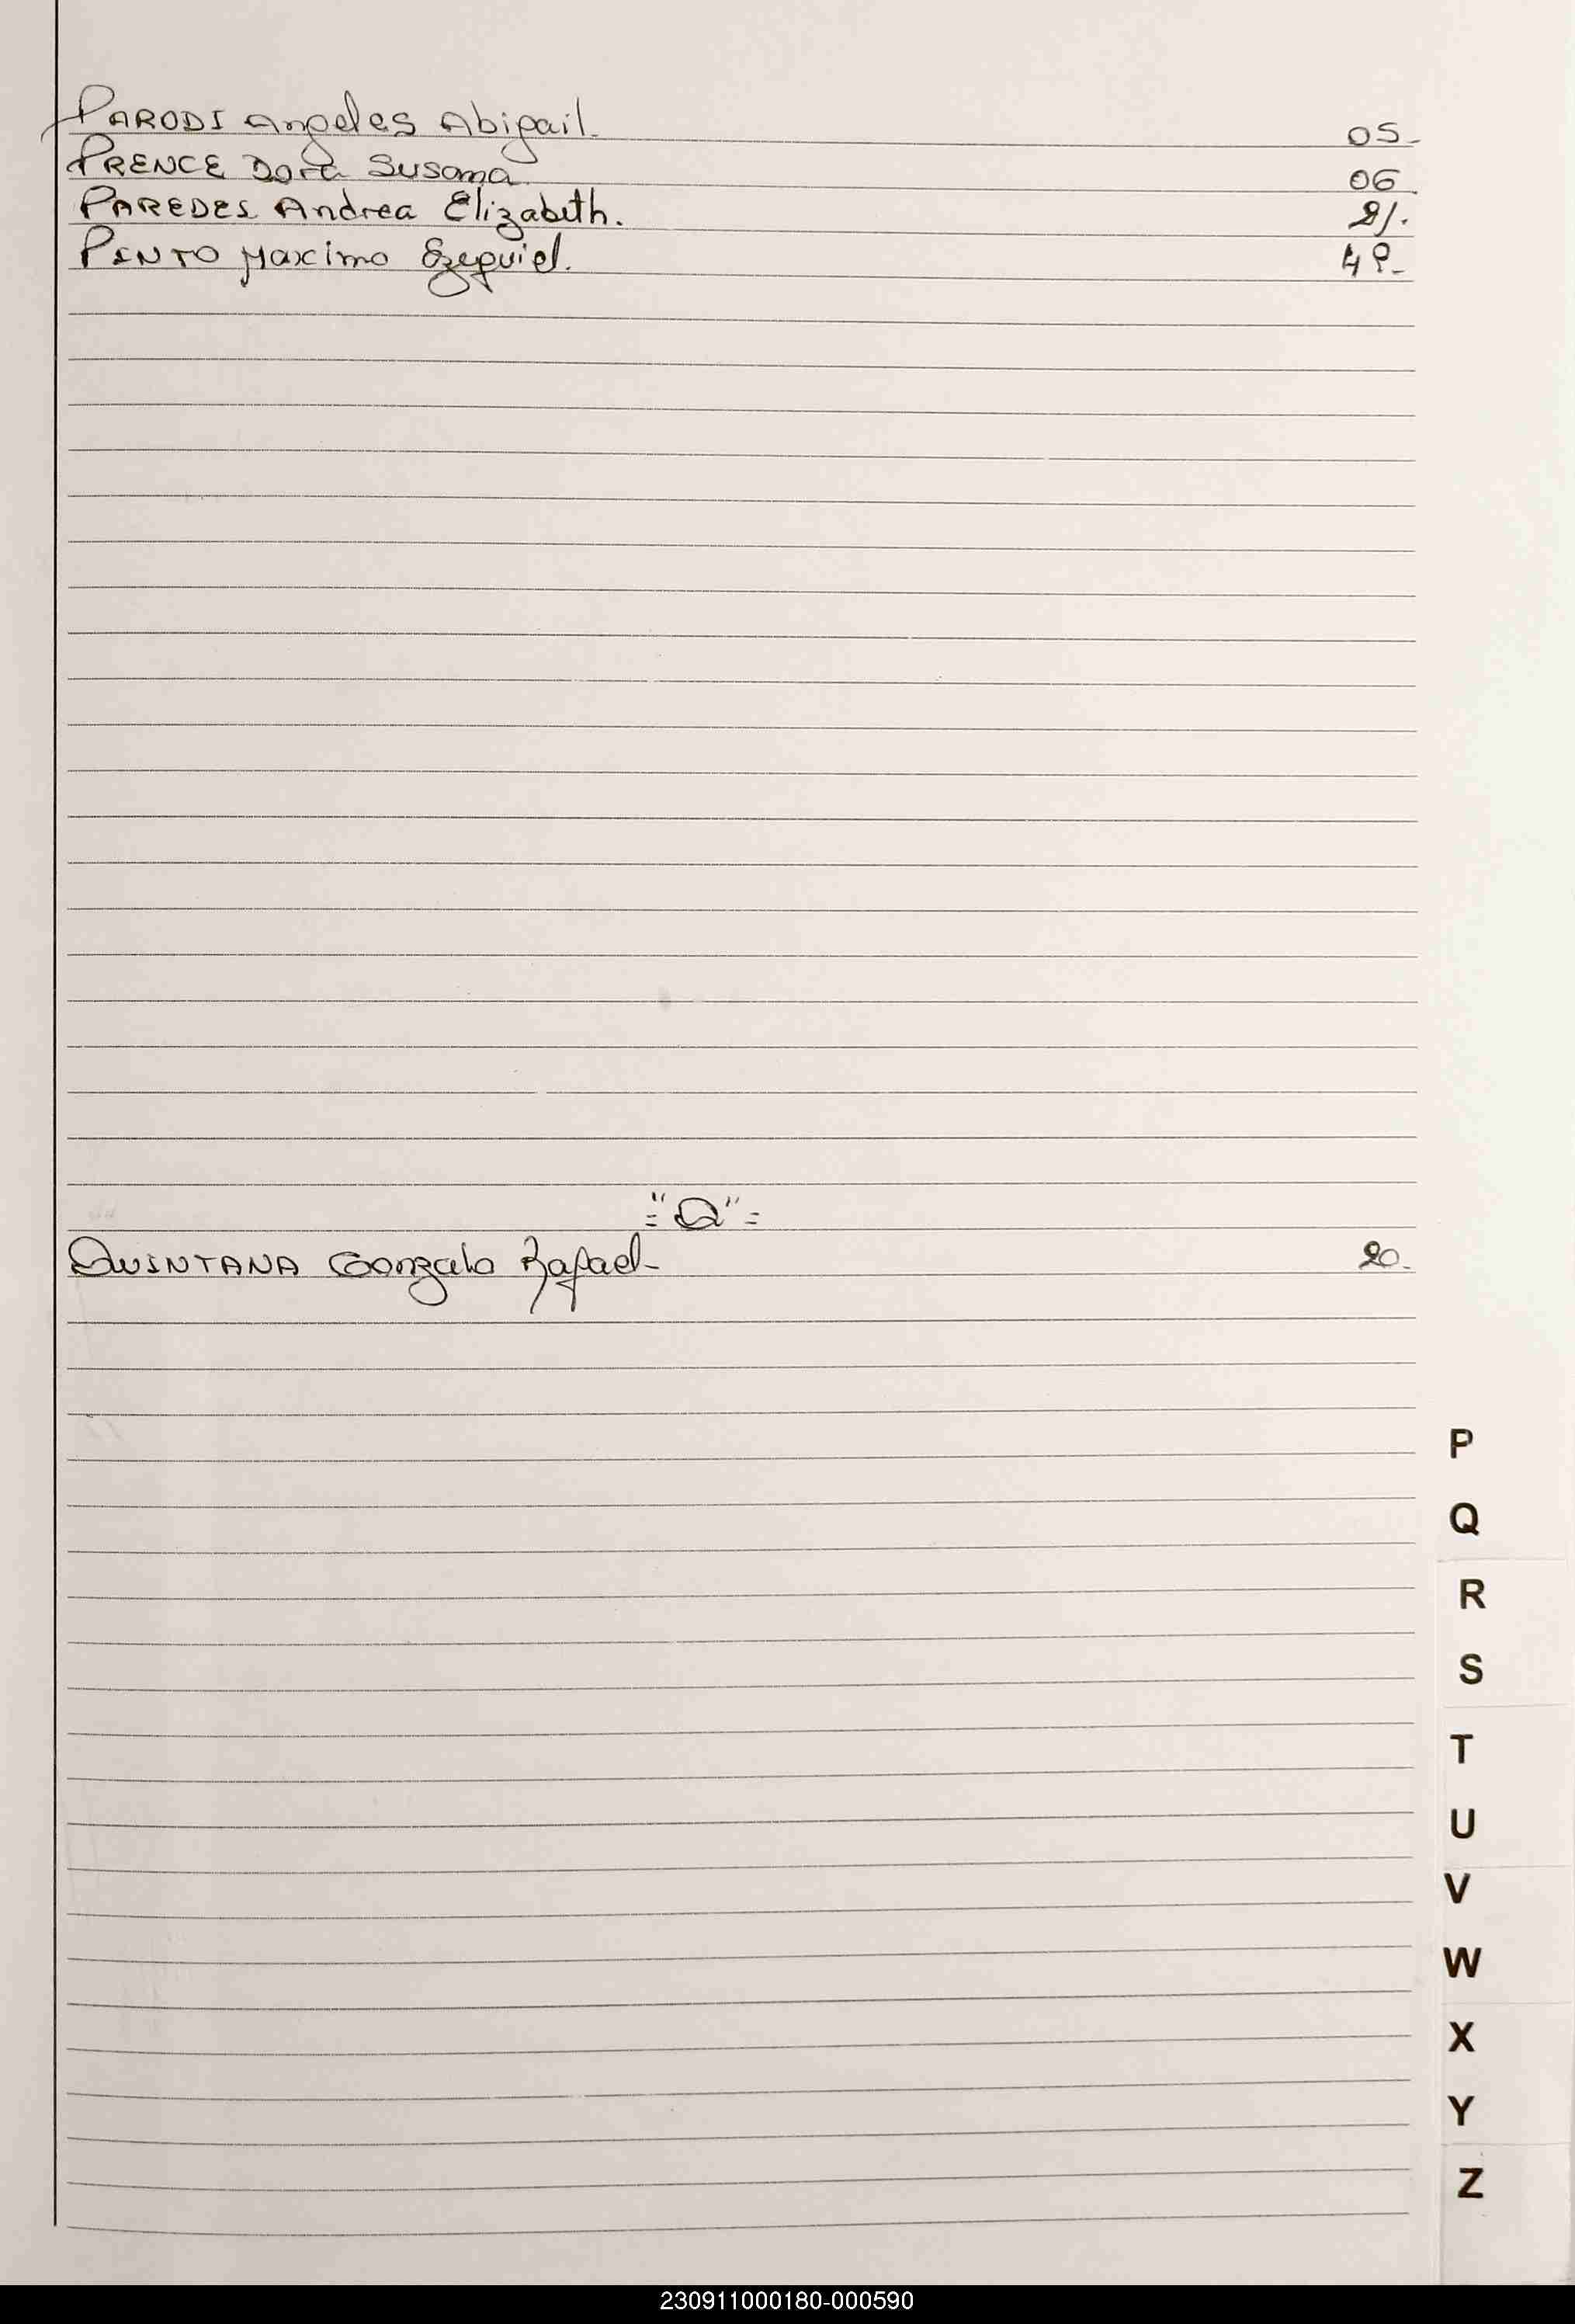 PARODI Angeles Abigail. 05-
PRENCE Dora Susana 06.
PAREDES Andrea Elizabeth. 21.
PINTO Maximo Ezequiel. 49-
="Q"=
QUINTANA Gonzalo Rafael- 20.
P
Q
R
S
T
U
V
W
X
Y
Z
230911000180-000590